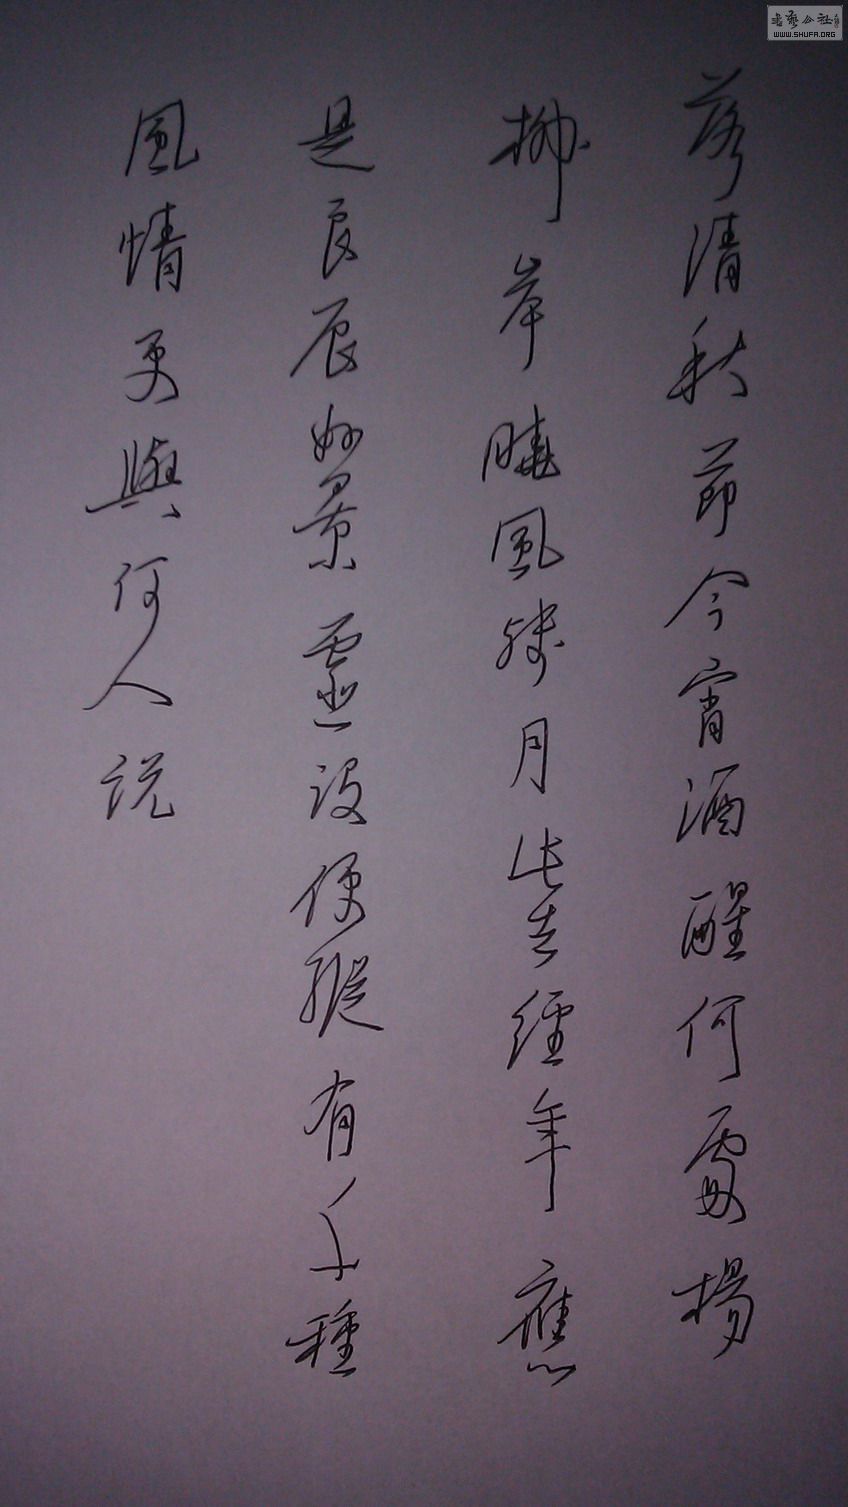 落清秋節今宵酒醒何處楊
柳岸曉風殘月此去經年應
是良辰好景虛設便縱有千種
風情更與何人說
書藝公社
WWW.SHUFA.ORG